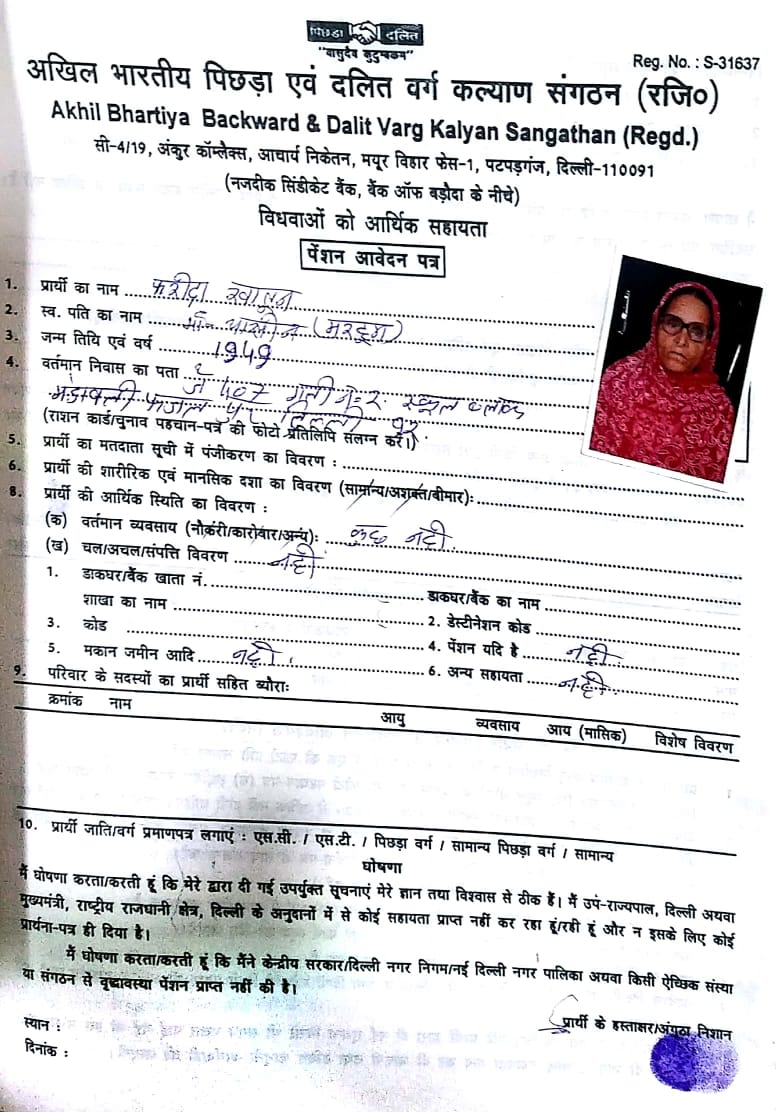 पिछड़ा दलित
"वासुदेव कुटुम्बकम"
Reg. No. : S-31637
अखिल भारतीय पिछड़ा एवं दलित वर्ग कल्याण संगठन (रजि०)
Akhil Bhartiya Backward & Dalit Varg Kalyan Sangathan (Regd.)
सी-4/19, अंकुर कॉम्लैक्स, आचार्य निकेतन, मयूर विहार फेस-1, पटपड़गंज, दिल्ली-110091
(नजदीक सिंडीकेट बैंक, बैंक ऑफ बड़ौदा के नीचे)
विधवाओं को आर्थिक सहायता
पेंशन आवेदन पत्र
1. प्रार्थी का नाम फरीदा खातुन
2. स्व. पति का नाम यासीन
3. जन्म तिथि एवं वर्ष 1949
4. वर्तमान निवास का पता जे 407 गली न: 2 स्कूल ब्लॉक
मंडावली फाजल पुर दिल्ली 92
(राशन कार्ड/चुनाव पहचान-पत्र की फोटो प्रतिलिपि संलग्न करें।)
5. प्रार्थी का मतदाता सूची में पंजीकरण का विवरण :
6. प्रार्थी की शारीरिक एवं मानसिक दशा का विवरण (सामान्य/अशक्त/बीमार):
8. प्रार्थी की आर्थिक स्थिति का विवरण :
(क) वर्तमान व्यवसाय (नौकरी/कारोबार/अन्य): कुछ नही
(ख) चल/अचल/संपत्ति विवरण नही
1. डाकघर/बैंक खाता नं. डाकघर/बैंक का नाम
शाखा का नाम 2. डेस्टीनेशन कोड
3. कोड 4. पेंशन यदि है नही
5. मकान जमीन आदि नही 6. अन्य सहायता नही
9. परिवार के सदस्यों का प्रार्थी सहित ब्यौराः
क्रमांक नाम आयु व्यवसाय आय (मासिक) विशेष विवरण
10. प्रार्थी जाति/वर्ग प्रमाणपत्र लगाएं : एस.सी. / एस.टी. / पिछड़ा वर्ग / सामान्य पिछड़ा वर्ग / सामान्य
घोषणा
मैं घोषणा करता/करती हूं कि मेरे द्वारा दी गई उपर्युक्त सूचनाएं मेरे ज्ञान तथा विश्वास से ठीक हैं। मैं उप-राज्यपाल, दिल्ली अथवा
मुख्यमंत्री, राष्ट्रीय राजधानी क्षेत्र, दिल्ली के अनुदानों में से कोई सहायता प्राप्त नहीं कर रहा हूं/रही हूं और न इसके लिए कोई
प्रार्थना-पत्र ही दिया है।
मैं घोषणा करता/करती हूं कि मैंने केन्द्रीय सरकार/दिल्ली नगर निगम/नई दिल्ली नगर पालिका अथवा किसी ऐच्छिक संस्था
या संगठन से वृद्धावस्था पेंशन प्राप्त नहीं की है।
स्थान :
प्रार्थी के हस्ताक्षर/अंगूठा निशान
दिनांक :